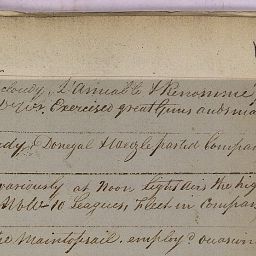 cloudy, L'Aimable & Renommee
Exercised great Guns and sma
dy & Donegal & Weazle parted Compan
variously at Noon Light Airs the hig
10 Leagues, Fleet in Compan
the Maintopsail. employ'd occasion